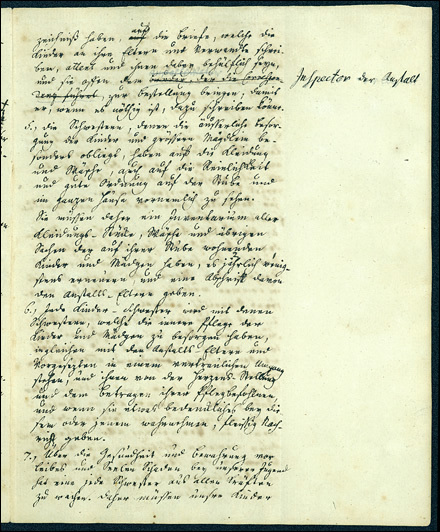 zeichniß haben, auch die Briefe, welche die
Kinder an ihre Eltern und Verwandte schrei-
ben, alles und ihnen dabey behülflich seyn,
und sie offen dem Inspector der Anstalt
zur Bestellung bringen, damit
er, wenn es nöthig ist, dazu schreiben könne.
5., die Schwestern, denen die äusserliche Besor-
gung der Kinder und grössern Mägdlein be-
sonders obliegt, haben auf die Kleidung
und Wäsche, auch auf die Reinlichkeit
und gute Ordnung auf der Stube und
im ganzen Hause vornemlich zu sehen.
Sie müssen daher ein Inventarium aller
Kleidungs-Stücke, Wäsche und übrigen
Sachen der auf ihrer Stube wohnenden
Kinder und Mädgen haben, es jährlich wenig-
stens erneuern, und eine Abschrift davon
den Anstalts-Eltern geben.
6., jede Kinder-Schwester wird mit denen
Schwestern, welche die innere Pflege der
Kinder und Mädgen zu besorgen haben,
ingleichen mit den Anstalts-Eltern und
Vorgesezten in einem vertraulichen Umgang
stehen, und ihnen von der Herzens-Stellung
und dem Betragen ihrer Pflegbefohlnen,
und wenn sie etwas bedenkliches bey die-
sem oder jenem wahrnehmen, fleißig Nach-
richt geben.
7., Über die Gesundheit und Bewahrung vor
Leibes und Seelen Schaden bey unserer Jugend
hat eine jede Schwester aus allen Kräften
zu wachen. Daher müssen unsre Kinder